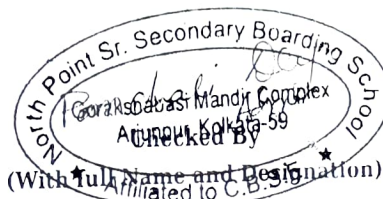 North Point Sr. Secondary Boarding School
Gorakshabasi Mandir Complex
Arjunpur, Kolkata-59
Checked By
(With full Name and Designation)
Affiliated to C.B.S.E.